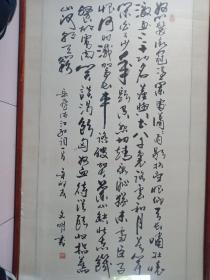 怒发冲冠凭阑处潇潇雨歇抬望眼仰天长啸壮怀
激烈三十功名尘与土八千里路云和月莫等
闲白了少年头空悲切靖康耻犹未雪臣子
恨何时灭驾长车踏破贺兰山缺壮志饥
餐胡虏肉笑谈渴饮匈奴血待从头收拾旧
山河朝天阙
岳飞满江红词